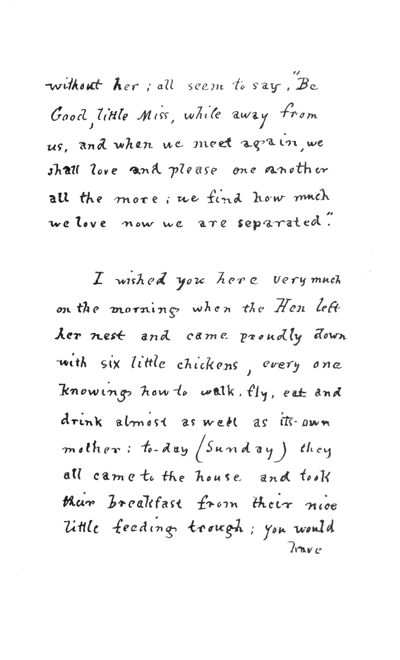 without her ; all seem to say, "Be
Good, little Miss, while away from
us, and when we meet again, we
shall love and please one another
all the more ; we find how much
we love now we are separated."
I wished you here very much
on the morning when the Hen left
her nest and came proudly down
with six little chickens, every one
knowing how to walk, fly, eat and
drink almost as well as its own
mother : to-day (Sunday) they
all came to the house and took
their breakfast from their nice
little feeding trough ; you would
have